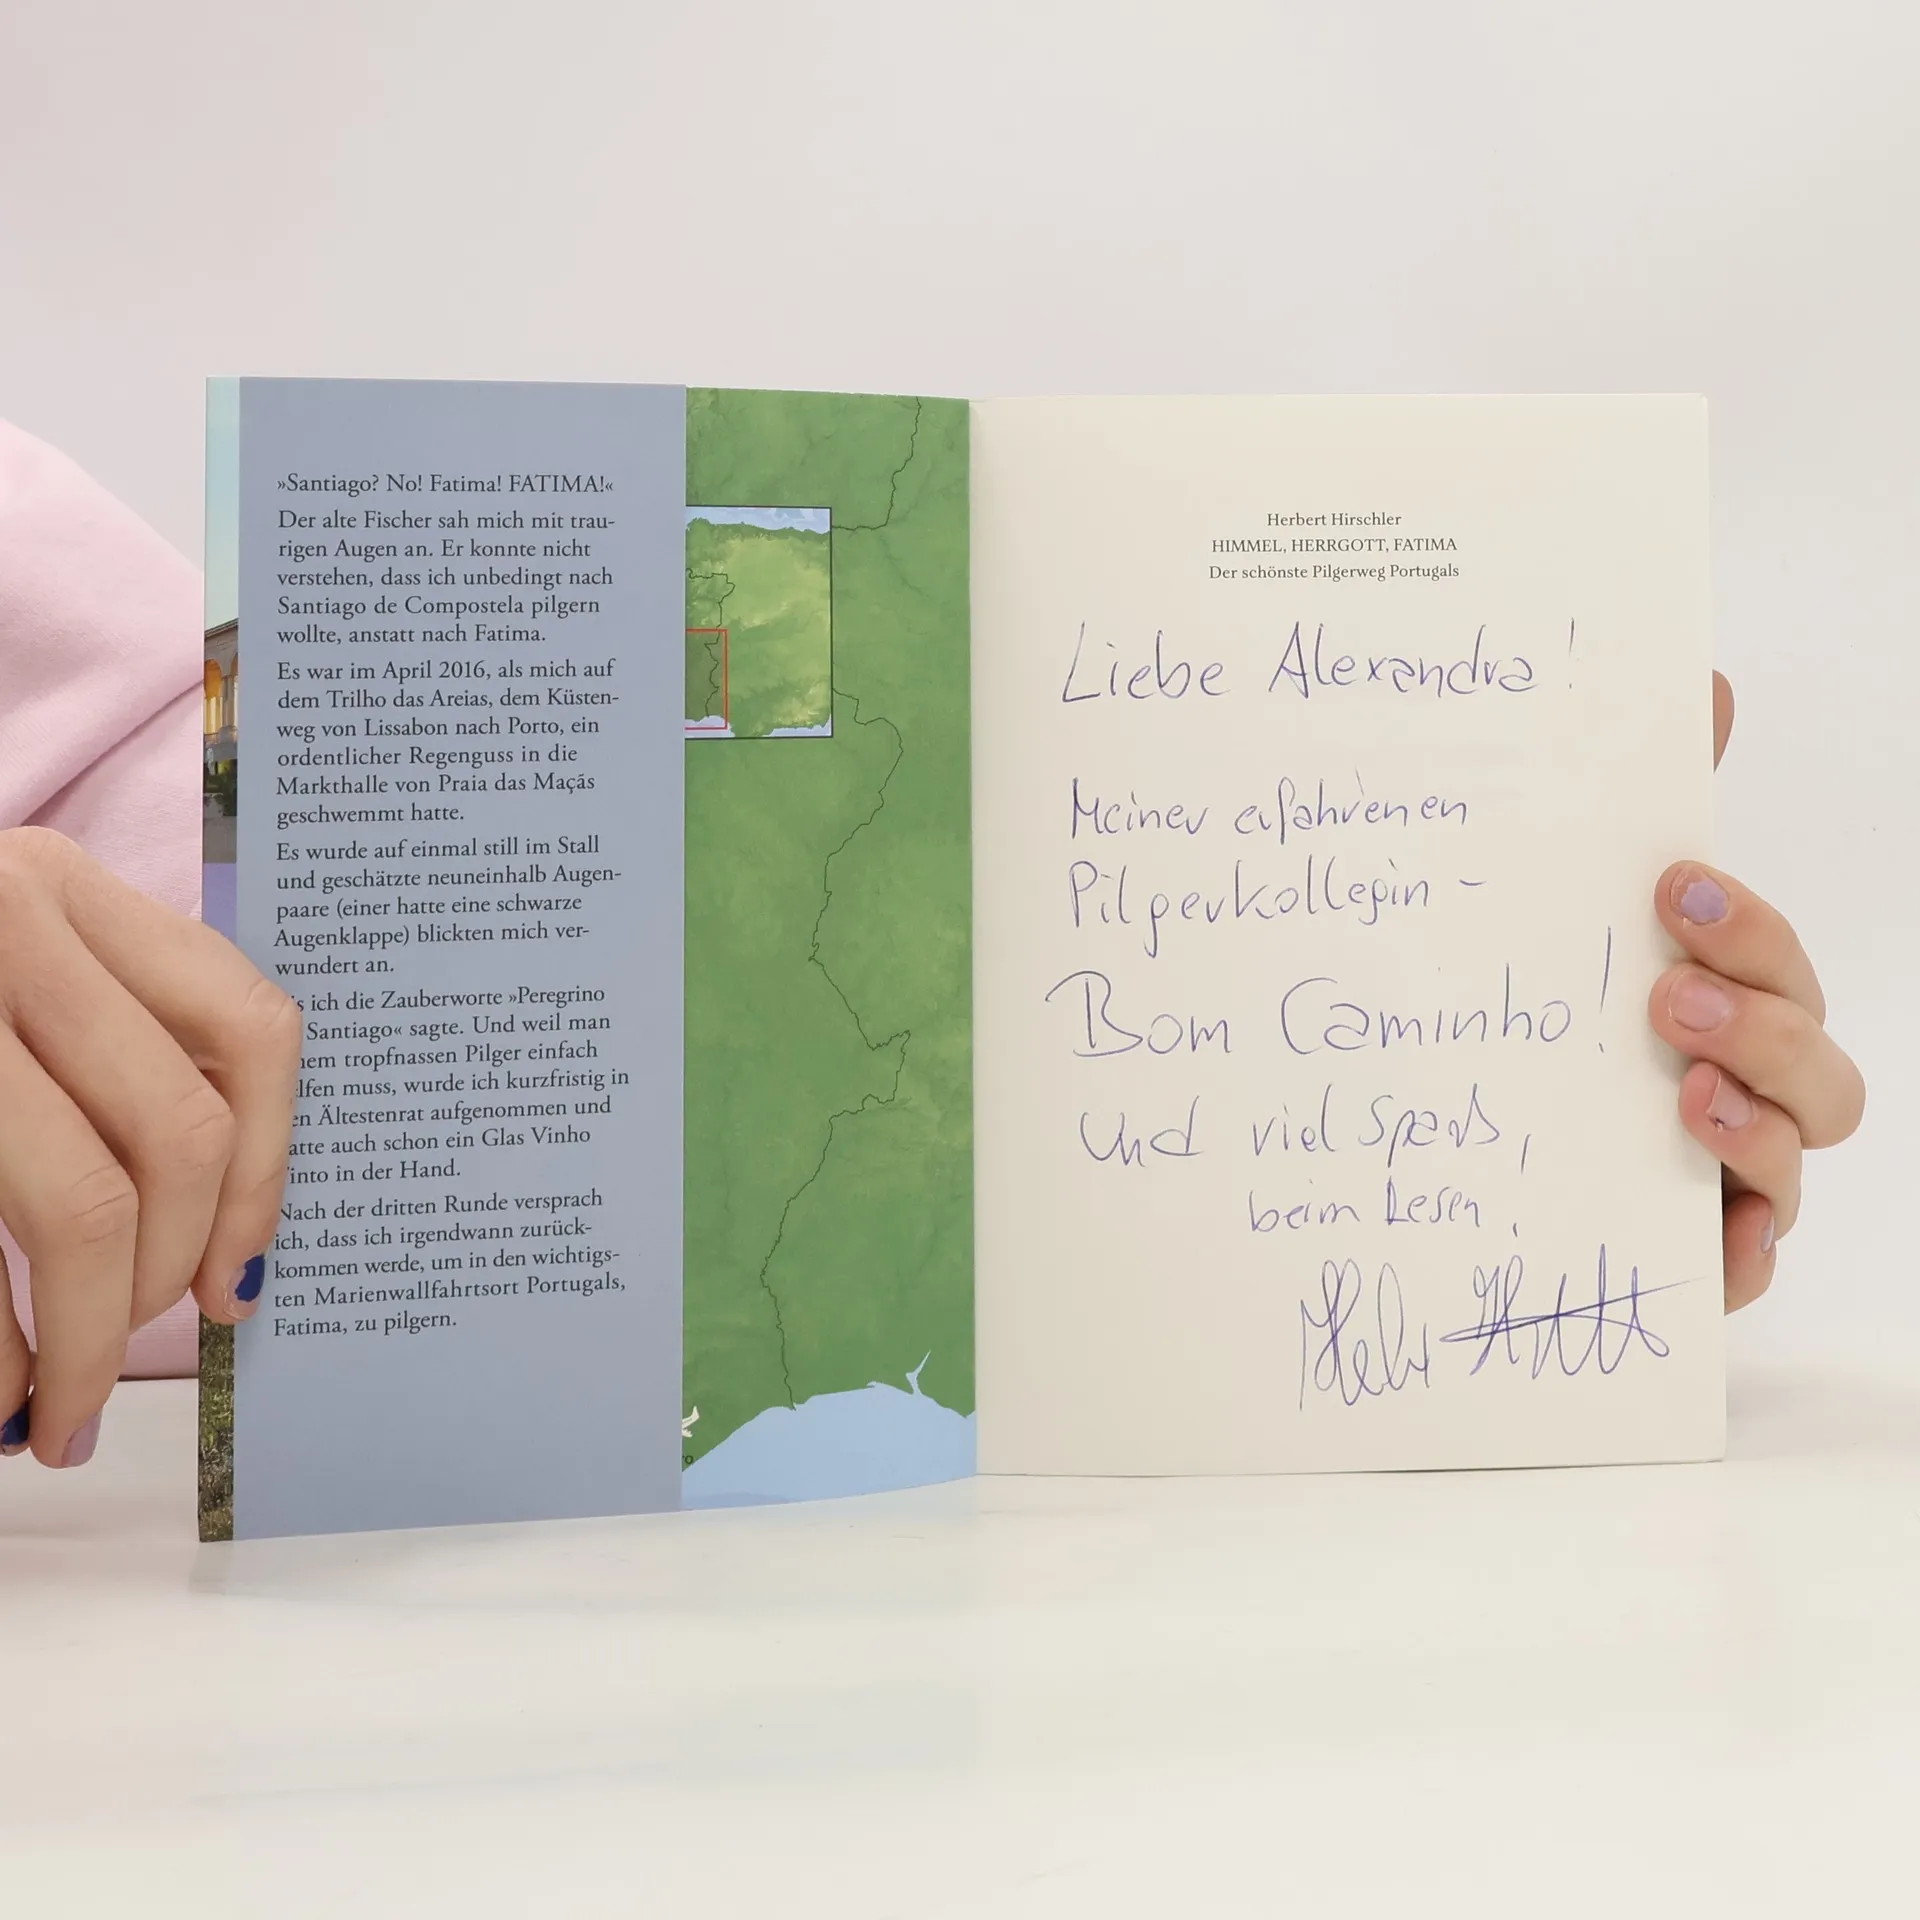 »Santiago? No! Fatima! FATIMA!«
Der alte Fischer sah mich mit trau-
rigen Augen an. Er konnte nicht
verstehen, dass ich unbedingt nach
Santiago de Compostela pilgern
wollte, anstatt nach Fatima.
Es war im April 2016, als mich auf
dem Trilho das Areias, dem Küsten-
weg von Lissabon nach Porto, ein
ordentlicher Regenguss in die
Markthalle von Praia das Maçãs
geschwemmt hatte.
Es wurde auf einmal still im Stall
und geschätzte neuneinhalb Augen-
paare (einer hatte eine schwarze
Augenklappe) blickten mich ver-
wundert an.
ich die Zauberworte »Peregrino
Santiago« sagte. Und weil man
tropfnassen Pilger einfach
muss, wurde ich kurzfristig in
Ältestenrat aufgenommen und
auch schon ein Glas Vinho
in der Hand.
Nach der dritten Runde versprach
ich, dass ich irgendwann zurück-
kommen werde, um in den wichtigs-
ten Marienwallfahrtsort Portugals,
Fatima, zu pilgern.
Herbert Hirschler
HIMMEL, HERRGOTT, FATIMA
Der schönste Pilgerweg Portugals
Liebe Alexandra!
Meiner erfahrenen
Pilgerkollegin -
Bom Caminho!
Und viel Spaß,
beim Lesen!